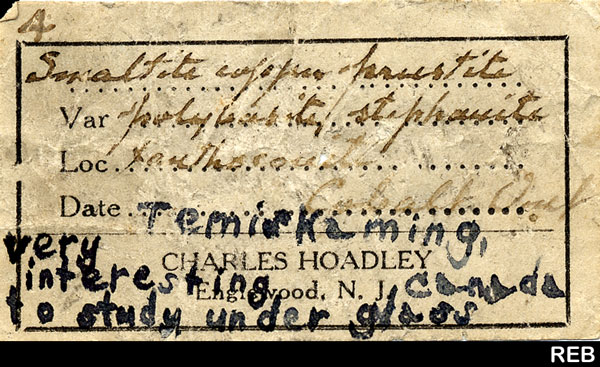 A
Smaltite copper proustite
Var polybasite, stephanite
Loc xanthoconite
Date Cobalt Ont
Temiskaming,
very
CHARLES HOADLEY
interesting Canada
Englewood, N. J.
to study under glass
REB